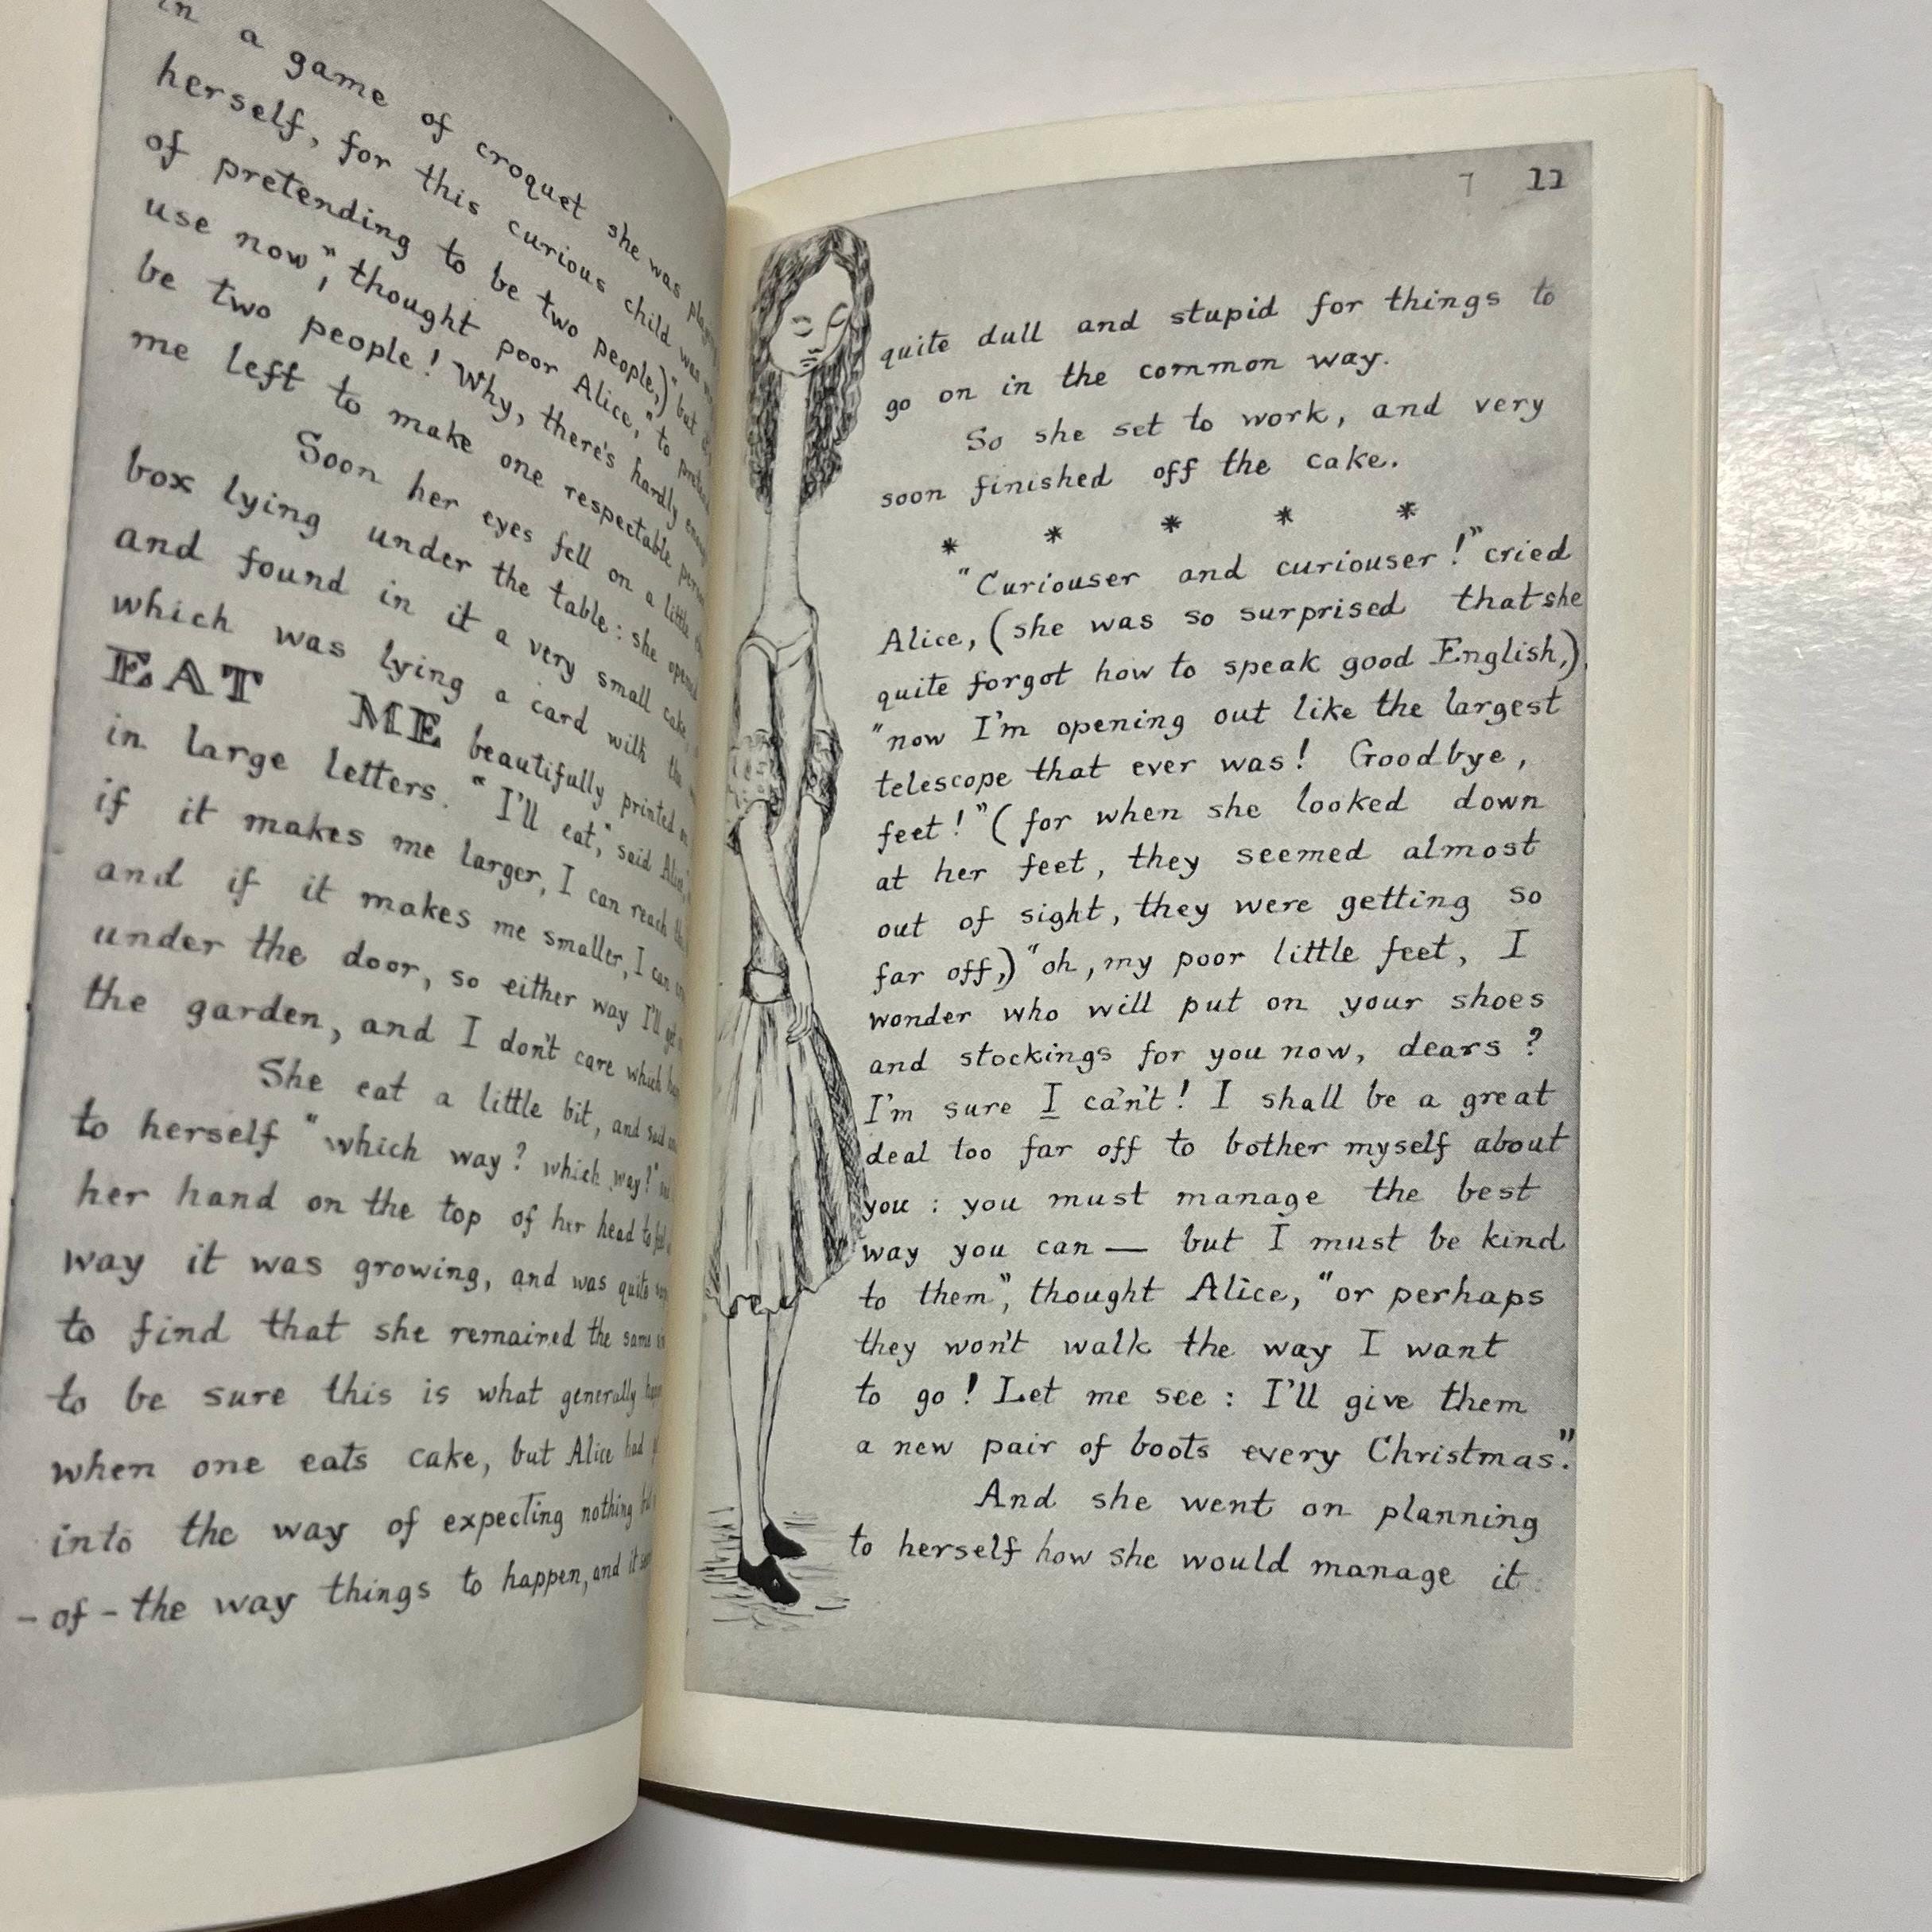 in a game of croquet she was
herself, for this curious child was
of pretending to be two people,) "but
use now", thought poor Alice, "to
be two people! Why, there's hardly
me left to make one respectable
Soon her eyes fell on a little
box lying under the table: she opened
and found in it a very small cake,
which was lying a card with the
EAT ME beautifully printed on
in large letters. "I'll eat", said Alice,
if it makes me larger, I can reach
and if it makes me smaller, I can
under the door, so either way I'll get
the garden, and I don't care which
She eat a little bit, and said
to herself "which way? which way?"
her hand on the top of her head to
way it was growing, and was quite
to find that she remained the same
to be sure this is what generally
when one eats cake, but Alice had
into the way of expecting nothing
-of-the way things to happen, and it
7 11
quite dull and stupid for things to
go on in the common way.
So she set to work, and very
soon finished off the cake.
* * * * *
"Curiouser and curiouser!" cried
Alice, (she was so surprised that she
quite forgot how to speak good English,)
"now I'm opening out like the largest
telescope that ever was! Goodbye,
feet!" (for when she looked down
at her feet, they seemed almost
out of sight, they were getting so
far off,) "oh, my poor little feet, I
wonder who will put on your shoes
and stockings for you now, dears?
I'm sure I ca'n't! I shall be a great
deal too far off to bother myself about
you: you must manage the best
way you can — but I must be kind
to them", thought Alice, "or perhaps
they won't walk the way I want
to go! Let me see: I'll give them
a new pair of boots every Christmas."
And she went on planning
to herself how she would manage it